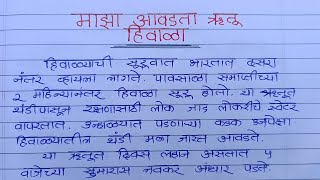 माझा आवडता ऋतू
हिवाळा
हिवाळ्याची सुरुवात भारतात दसरा
नंतर व्हायला लागते. पावसाळा समाप्तीच्या
२ महिन्यानंतर हिवाळा सुरू होतो. या ऋतूत
थंडीपासून रक्षणासाठी लोक जाड लोकरीचे स्वेटर
वापरतात. उन्हाळ्यात पडणाऱ्या कडक उन्हापेक्षा
हिवाळ्यातील थंडी मला जास्त आवडते.
या ऋतूत दिवस लहान असतात ५
वाजेच्या सुमारास लवकर अंधार पडतो.